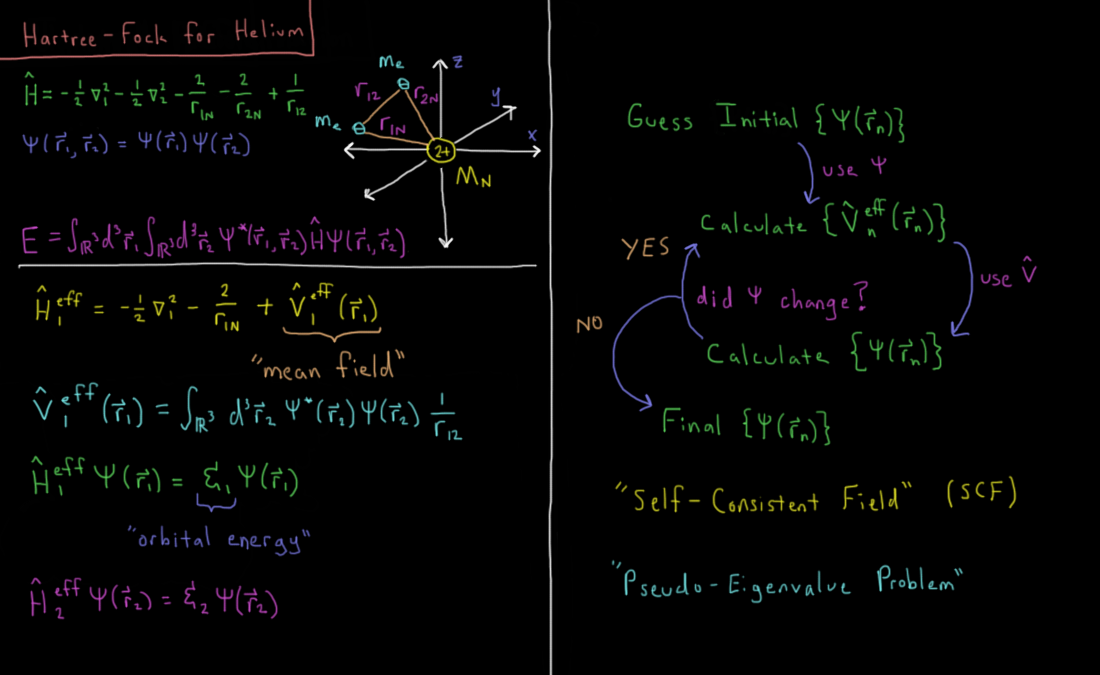 Hartree-Fock for Helium
Ĥ = -½ ∇₁² - ½ ∇₂² - 2/r₁N - 2/r₂N + 1/r₁₂
Ψ(r⃗₁, r⃗₂) = Ψ(r⃗₁) Ψ(r⃗₂)
mₑ
z
r₁₂
r₂N
y
mₑ
r₁N
x
2+
M_N
E = ∫_ℝ³ d³r⃗₁ ∫_ℝ³ d³r⃗₂ Ψ*(r⃗₁, r⃗₂) Ĥ Ψ(r⃗₁, r⃗₂)
Ĥ₁^eff = -½ ∇₁² - 2/r₁N + V̂₁^eff (r⃗₁)
"mean field"
V̂₁^eff (r⃗₁) = ∫_ℝ³ d³r⃗₂ Ψ*(r⃗₂) Ψ(r⃗₂) 1/r₁₂
Ĥ₁^eff Ψ(r⃗₁) = ℰ₁ Ψ(r⃗₁)
"orbital energy"
Ĥ₂^eff Ψ(r⃗₂) = ℰ₂ Ψ(r⃗₂)
Guess Initial {Ψ(r⃗ₙ)}
use Ψ
Calculate {V̂ₙ^eff (r⃗ₙ)}
YES
use V̂
did Ψ change?
NO
Calculate {Ψ(r⃗ₙ)}
Final {Ψ(r⃗ₙ)}
"Self-Consistent Field" (SCF)
"Pseudo-Eigenvalue Problem"